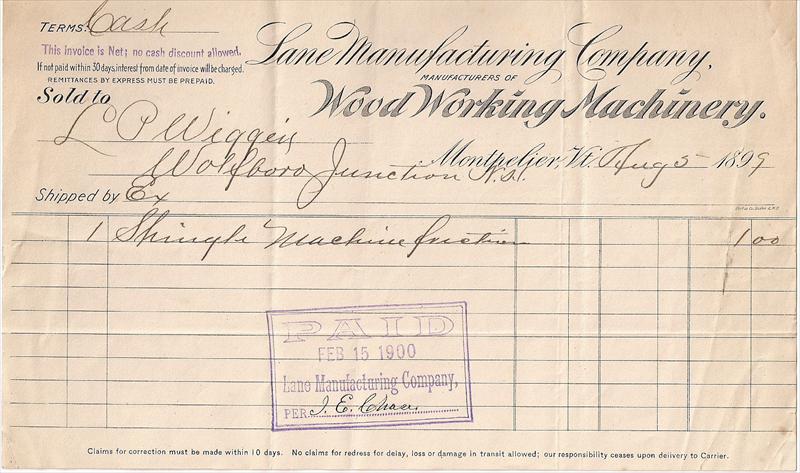 TERMS: Cash
This Invoice is Net; no cash discount allowed.
If not paid within 30 days, interest from date of invoice will be charged.
REMITTANCES BY EXPRESS MUST BE PREPAID.
Lane Manufacturing Company,
MANUFACTURERS OF
Wood Working Machinery.
Sold to
Lo P Wiggin
Montpelier, Vt. Aug 5 1899
Wolfboro Junction N.H.
Shipped by Ex
1 Shingle Machine friction 1 00
PAID
FEB 15 1900
Lane Manufacturing Company,
PER J. E. Chase
Claims for correction must be made within 10 days. No claims for redress for delay, loss or damage in transit allowed; our responsibility ceases upon delivery to Carrier.